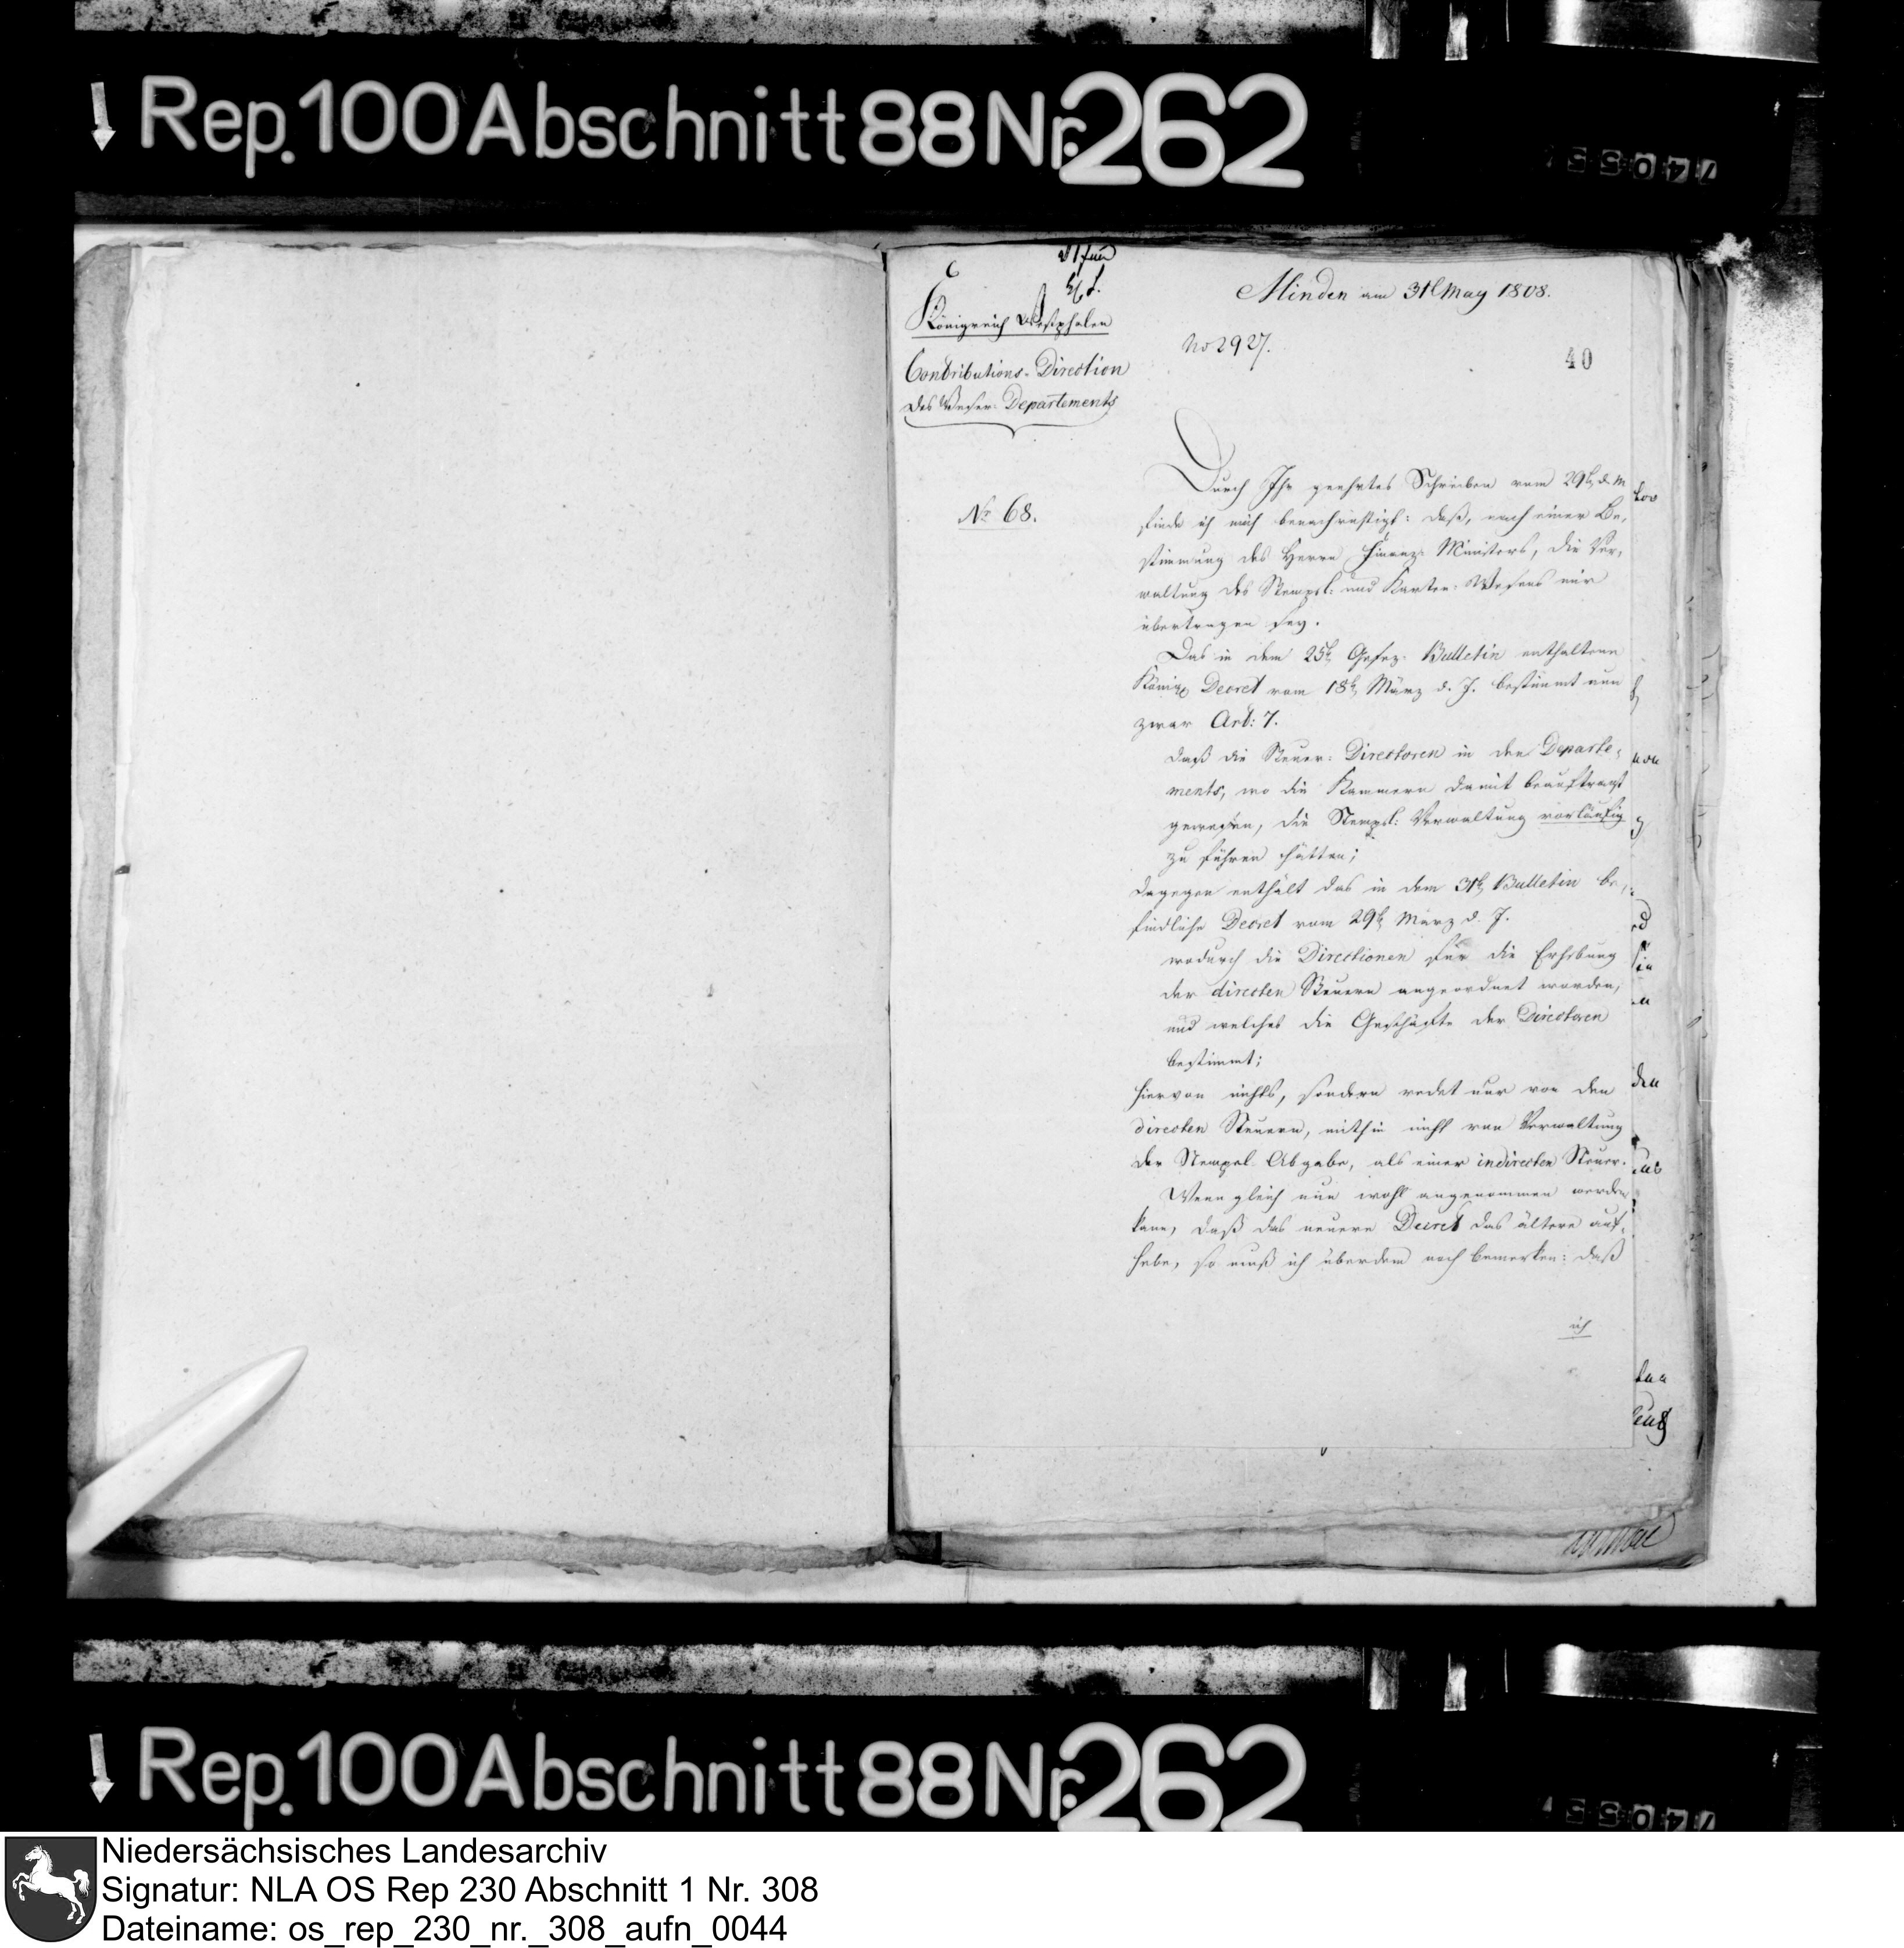 Rep. 100 Abschnitt 88 Nr. 262
Königreich Westphalen
Contributions-Direction
des Weser-Departements
Minden am 31t May 1808.
No 2927.
40
No 68.
Durch Ihr geehrtes Schreiben vom 29t d. M
finde ich mich benachrichtigt: daß, nach einer Be-
stimmung des Herrn Finanz-Ministers, die Ver-
waltung des Stempel- und Karten-Wesens mir
übertragen sey.
Das in dem 25t Gesez-Bulletin enthaltene
Königl Decret vom 18t März d. J. bestimmt nun
zwar Art: 7.
daß die Steuer-Directoren in den Departe-
ments, wo die Kammern damit beauftragt
gewesen, die Stempel-Verwaltung vorläufig
zu führen hätten;
dagegen enthält das in dem 31t Bulletin be-
findliche Decret vom 29t März d. J.
wodurch die Directionen für die Erhebung
der directen Steuern angeordnet worden,
und welches die Geschäfte der Directoren
bestimmt;
hiervon nichts, sondern redet nur von den
directen Steuern, mithin nicht von Verwaltung
der Stempel-Abgabe, als einer indirecten Steuer.
Wenn gleich nun wohl angenommen werden
kann, daß das neuere Decret das ältere auf-
hebe, so muß ich überdem noch bemerken: daß
ich
Rep. 100 Abschnitt 88 Nr. 262
Niedersächsisches Landesarchiv
Signatur: NLA OS Rep 230 Abschnitt 1 Nr. 308
Dateiname: os_rep_230_nr._308_aufn_0044